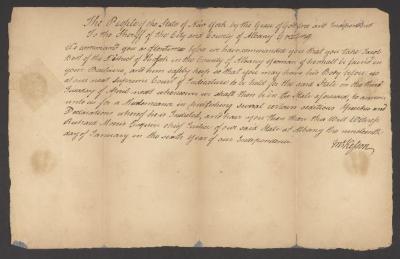 The People of the State of New York by the Grace of God free and Independent
To the Sheriff of the City and County of Albany Greeting
We command you as oftentimes before we have commanded you that you take
of the District of in the County of Albany Yeoman if he shall be found in
your Bailiwick, and him safely keep so that you may have his Body before us
at our next Supreme Court of Judicature to be held for the said State on the third
Tuesday of April next wheresoever we shall then be in the State aforesaid to answer
unto us for a Misdemeanor in publishing several certain seditious Speeches and
Declarations whereof he is Indicted, and have you then there this Writ Witness
Richard Morris Esquire chief Justice of our said State at Albany the nineteenth
day of January in the sixth Year of our Independence
McKesson